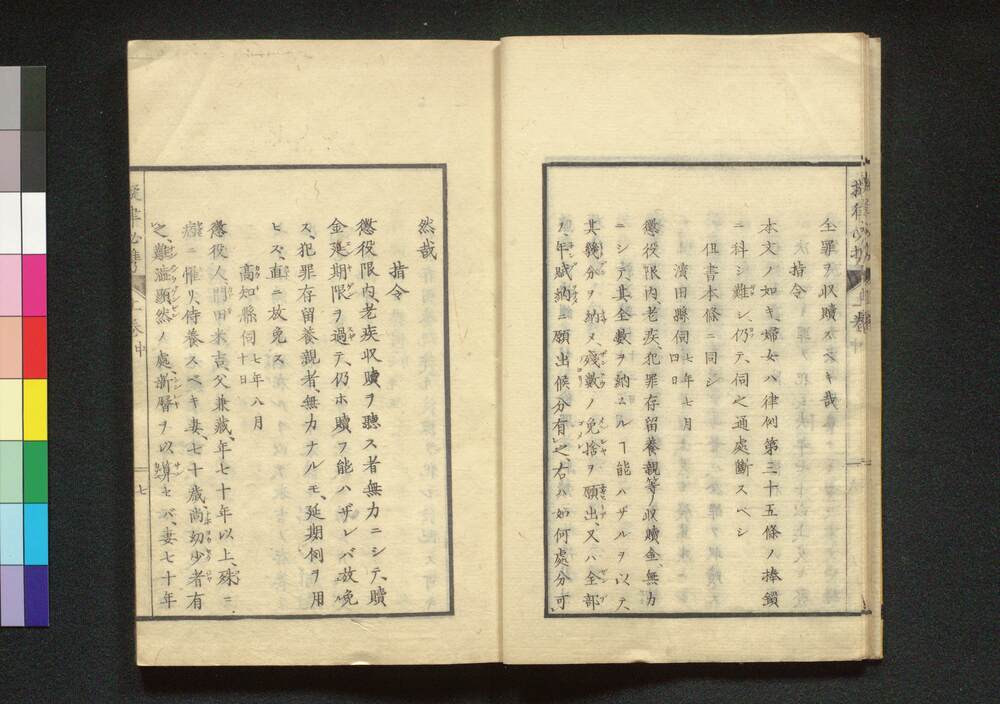 全罪ヲ收贖スベキ哉
指令
本文ノ如キ婦女ハ律例第三十五條ノ捧鎖
ニ科シ難シ、仍テ、伺之通處斷スベシ
但書本條ニ同シ
濱田縣伺 七年七月 四日
懲役限内、老疾、犯罪存留養親等ノ收贖金、無力
ニシテ、其全數ヲ納ムルヿ能ハザルヲ以テ、
其幾分ヲ納メ、殘數ノ免捨ヲ願出、又ハ全部
年賦納ニ願出候分有之、右ハ如何處分可
然哉
指令
懲役限内、老疾收贖ヲ聽ス者無力ニシテ、贖
金延期限ヲ過テ、仍ホ贖フ能ハザレバ放免
ス、犯罪存留養親者、無力ナルモ、延期例ヲ用
ヒズ、直ニ放免ス
高知縣伺 七年八月 十日
懲役人、間田米吉、父兼藏、年七十年以上、殊ニ
癈ニ罹リ、侍養スベキ妻、七十歳、尚幼少者有
之、難澁顯然ノ處、新曆ヲ以算セバ、妻七十年
七